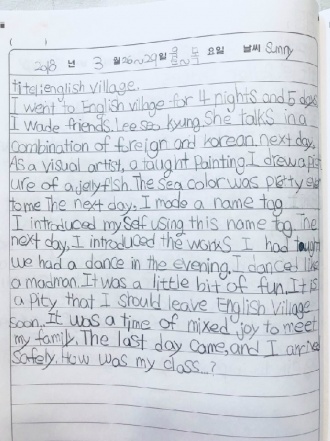 ( )
2018 년 3 월 26~29 일 요일 날씨 Sunny
title: english village.
I went to English village for 4 nights and 5 days
I made friends. Lee seo kyung. She talks in a
combination of foreign and korean. next day.
As a visual artist, a taught Painting. I drew a pict
ure of a jellyfish. The sea color was pretty
to me. The next day. I made a name tag
I introduced my self using this name tag. The
next day. I introduced the works I had taught
we had a dance in the evening. I danced like
a madman. It was a little bit of fun. It is
a pity that I should leave English Village
soon. It was a time of mixed joy to meet
my family. The last day came, and I arrived
safely. How was my class...?